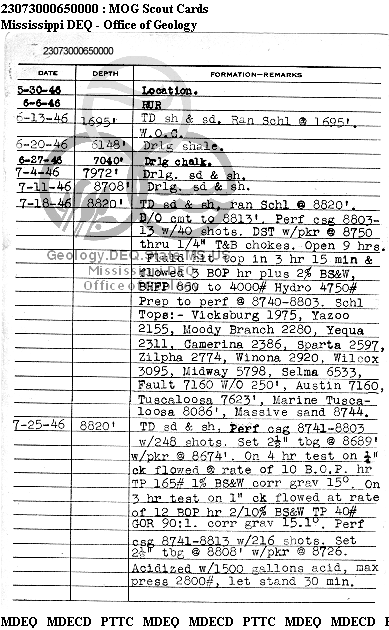 23073000650000 : MOG Scout Cards
Mississippi DEQ - Office of Geology
23073000650000
DATE DEPTH FORMATION—REMARKS
5-30-46 Location.
6-6-46 RUR
6-13-46 1695' TD sh & sd. Ran Schl @ 1695'.
W.O.C.
6-20-46 6148' Drlg shale.
6-27-46 7040' Drlg chalk.
7-4-46 7972' Drlg. sd & sh.
7-11-46 8708' Drlg. sd & sh.
7-18-46 8820' TD sd & sh, ran Schl @ 8820'.
D/O cmt to 8813'. Perf csg 8803-
13 w/40 shots. DST w/pkr @ 8750
thru 1/4" T&B chokes. Open 9 hrs.
Fluid hit top in 3 hr 15 min &
flowed 3 BOP hr plus 2% BS&W,
BHFP 850 to 4000# Hydro 4750#
Prep to perf @ 8740-8803. Schl
Tops:- Vicksburg 1975, Yazoo
2155, Moody Branch 2280, Yequa
2311, Camerina 2386, Sparta 2597,
Zilpha 2774, Winona 2920, Wilcox
3095, Midway 5798, Selma 6533,
Fault 7160 W/O 250', Austin 7160,
Tuscaloosa 7623', Marine Tusca-
loosa 8086', Massive sand 8744.
7-25-46 8820' TD sd & sh, Perf csg 8741-8803
w/248 shots. Set 2½" tbg @ 8689'
w/pkr @ 8674'. On 4 hr test on ¼"
ck flowed @ rate of 10 B.O.P. hr
TP 165# 1% BS&W corr grav 15°. On
3 hr test on 1" ck flowed at rate
of 12 BOP hr 2/10% BS&W TP 40#
GOR 90:1. corr grav 15.1°. Perf
csg 8741-8813 w/216 shots. Set
2½" tbg @ 8808' w/pkr @ 8726.
Acidized w/1500 gallons acid, max
press 2800#, let stand 30 min.
Geology.DEQ.State.MS.US
Mississippi DEQ
Office of Geology
MDEQ MDECD PTTC MDEQ MDECD PTTC MDEQ MDECD